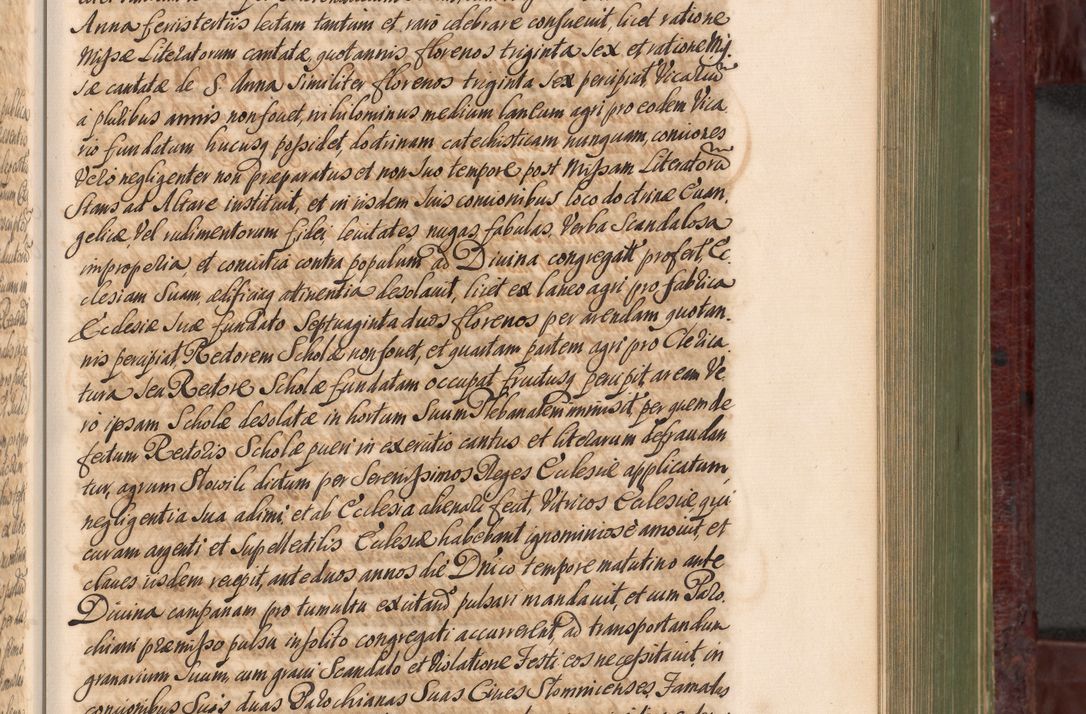 Anna feris tertiis lectam tantum et raro celebrare consuevit, licet ratione
Missæ Literatorum cantatæ, quotannis florenos triginta sex et ratione Mis,
sæ cantatæ de S. Anna similiter florenos triginta sex percipiat, Vicarium
á pluribus annis non fovet, nihilominus medium laneum agri pro eodem Vica
rio fundatum hucusq possidet, doctrinam catechisticam nunquam, conciones
Vero negligenter non præparatus et non suo tempore post Missam Literatorum
stans ad Altare instituit, et in iisdem suis concionibus loco doctrinæ Evan,
gelicæ Vel rudimentorum fidei levitates, nugas, fabulas, Verba Scandalosa
improperia, et convitia contra populum ad Divina congregatum profert, Ec,
clesiam suam, ædificiaq attinentia desolavit, licet ex laneo agri pro fabrica
Ecclesiæ suæ fundato Septuaginta duos florenos per arendam quotan,
nis percipiat, Rectorem Scholæ non fovet, et quartam partem agri pro Clerica
tura seu Rectore Scholæ fundatam occupat, fructusq percipit, aream Ve
ro ipsam Scholæ desolatæ in hortum suum Plebanalem immisit, per quem de
fectum Rectoris Scholæ pueri in exercitio cantus et literarum defraudan
tur, agrum Slowik dictum per Serenissimos Reges Ecclesiæ applicatum
negligentia sua adimi, et ab Ecclesia alienari fecit, Vitricos Ecclesiæ qui
curam argenti et supellectilis Ecclesiæ habebant ignominiosè amovit, et
claves iisdem recepit, ante duos annos die Dnico tempore matutino ante
Divina campanam pro tumultu excitand pulsari mandavit, et cum Paro,
chiani præmisso pulsu insolito congregati accurrerent, ad transportandum
granarium suum, cum gravi Scandalo et Violatione Festi eos necessitavit, in
concionibus suis duas Parochianas suas Cives Slomnicenses, Famatas